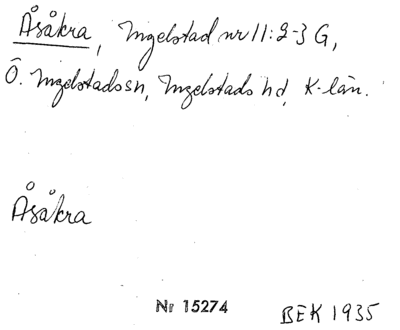 Åsåkra, Ingelstad nr 11:2-3 G,
Ö. Ingelstads sn, Ingelstads hd, K-län.
Åsåkra
Nr 15274
BEK 1935